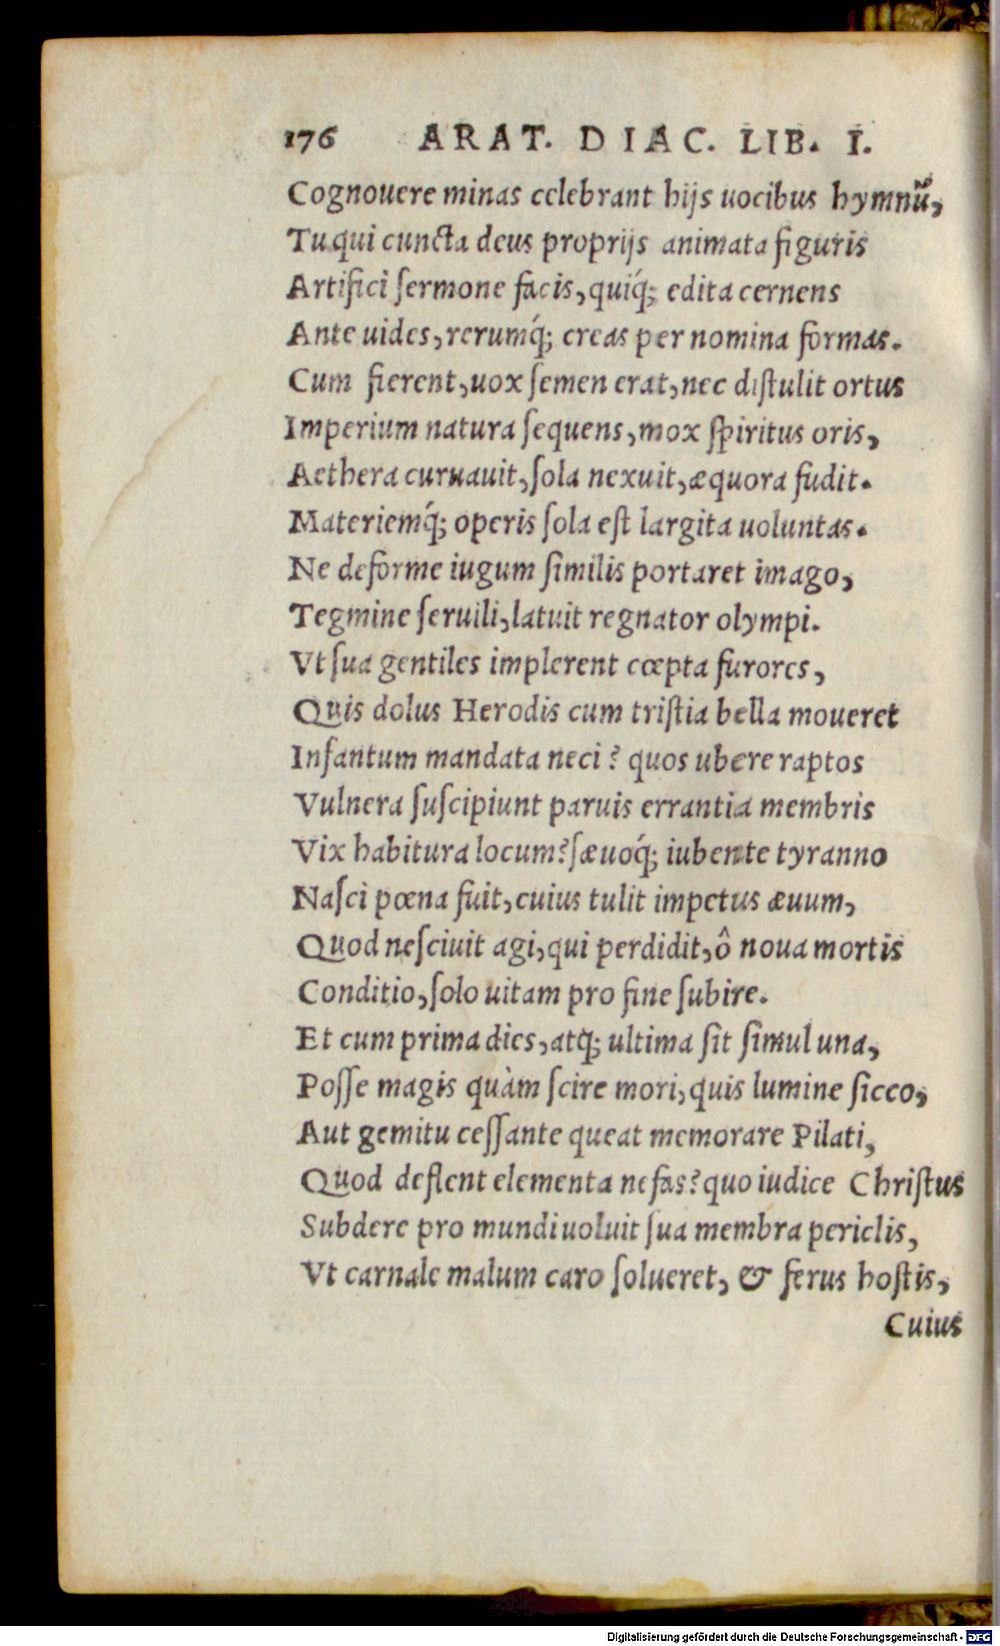 176 ARAT. DIAC. LIB. I.
Cognouere minas celebrant hijs uocibus hymnū,
Tu qui cuncta deus proprijs animata figuris
Artifici ſermone facis, quiq́; edita cernens
Ante uides, rerumq́; creas per nomina formas.
Cum fierent, uox ſemen erat, nec diſtulit ortus
Imperium natura ſequens, mox ſpiritus oris,
Aethera curuauit, ſola nexuit, æquora fudit.
Materiemq́; operis ſola eſt largita uoluntas.
Ne deforme iugum ſimilis portaret imago,
Tegmine ſeruili, latuit regnator olympi.
Vt ſua gentiles implerent cœpta furores,
Quis dolus Herodis cum triſtia bella moueret
Infantum mandata neci? quos ubere raptos
Vulnera ſuſcipiunt paruis errantia membris
Vix habitura locum? ſæuoq́; iubente tyranno
Naſci pœna fuit, cuius tulit impetus æuum,
Quod neſciuit agi, qui perdidit, ô noua mortis
Conditio, ſolo uitam pro fine ſubire.
Et cum prima dies, atq; ultima ſit ſimul una,
Poſſe magis quàm ſcire mori, quis lumine ſicco,
Aut gemitu ceſſante queat memorare Pilati,
Quod deflent elementa nefas? quo iudice Chriſtus
Subdere pro mundi uoluit ſua membra periclis,
Vt carnale malum caro ſolueret, & ferus hoſtis,
Cuius
Digitalisierung gefördert durch die Deutsche Forschungsgemeinschaft - DFG